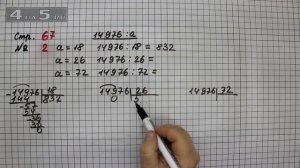 4 5
Стр. 67
№ 2
14976:a
a = 18 14976:18 = 832
a = 26 14976:26 =
a = 72 14976:72 =
14976 18
144 832
57
54
36
36
0
14976 26
0 5
14976 72